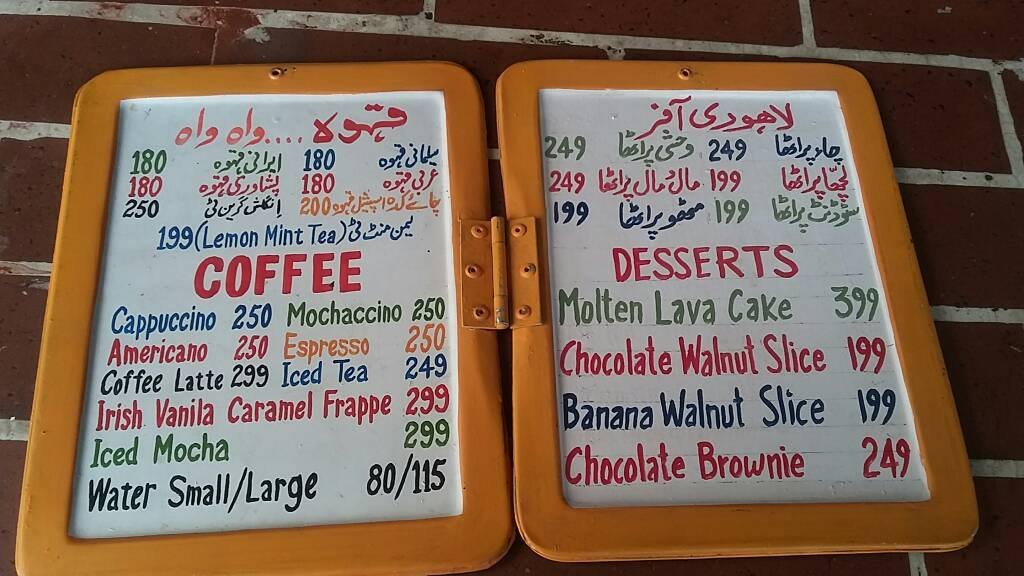 قہوہ....واہ واہ
سلیمانی قہوہ 180 ایرانی قہوہ 180
عربی قہوہ 180 پشاوری قہوہ 180
اسپیشل قہوہ 200 انگلش گرین ٹی 250
لیمن منٹ ٹی (Lemon Mint Tea) 199
COFFEE
Cappuccino 250 Mochaccino 250
Americano 250 Espresso 250
Coffee Latte 299 Iced Tea 249
Irish Vanila Caramel Frappe 299
Iced Mocha 299
Water Small/Large 80/115
لاہوری آفر
چار پراٹھا 249 وحشی پراٹھا 249
لچھا پراٹھا 199 مال مال پراٹھا 249
سٹوڈنٹ پراٹھا 199 مٹھو پراٹھا 199
DESSERTS
Molten Lava Cake 399
Chocolate Walnut Slice 199
Banana Walnut Slice 199
Chocolate Brownie 249